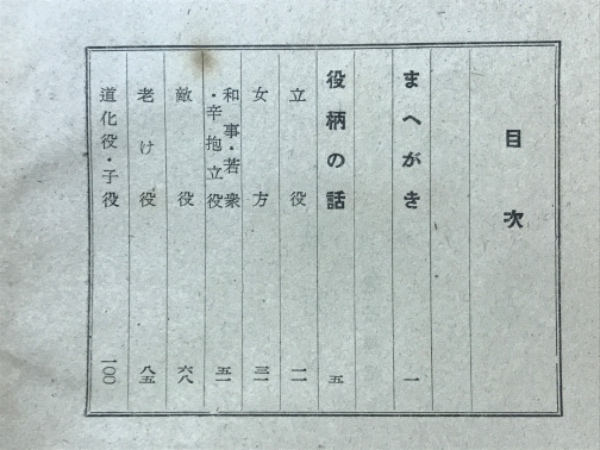 目次
まへがき 一
役柄の話 五
立役 一一
女方 三一
和事・若衆
・辛抱立役 五一
敵役 六八
老け役 八五
道化役・子役 一〇〇